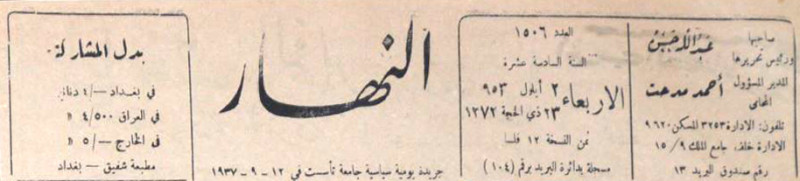 صاحبها
ورئيس تحريرها
عبد الله حسن
المدير المسؤول
المحامي
أحمد مدحت
تلفون: الادارة ٣٢٥٣ المسكن ٩٦٢٠
الادارة خلف جامع الملك ١٥/٩
رقم صندوق البريد ١٣
العدد ١٥٠٦
السنة السادسة عشرة
الاربعاء
٢ أيلول ٩٥٣
٢٣ ذي الحجة ١٣٧٢
ثمن النسخة ١٢ فلسا
مسجلة بدائرة البريد برقم (١٠٤)
النهار
جريدة يومية سياسية جامعة تأسست في ١٢-٩-١٩٣٧
بدل المشاركة
في بغداد -/٤ دنانير
في العراق ٤/٥٠٠ »
في الخارج -/٥ »
مطبعة شفيق - بغداد